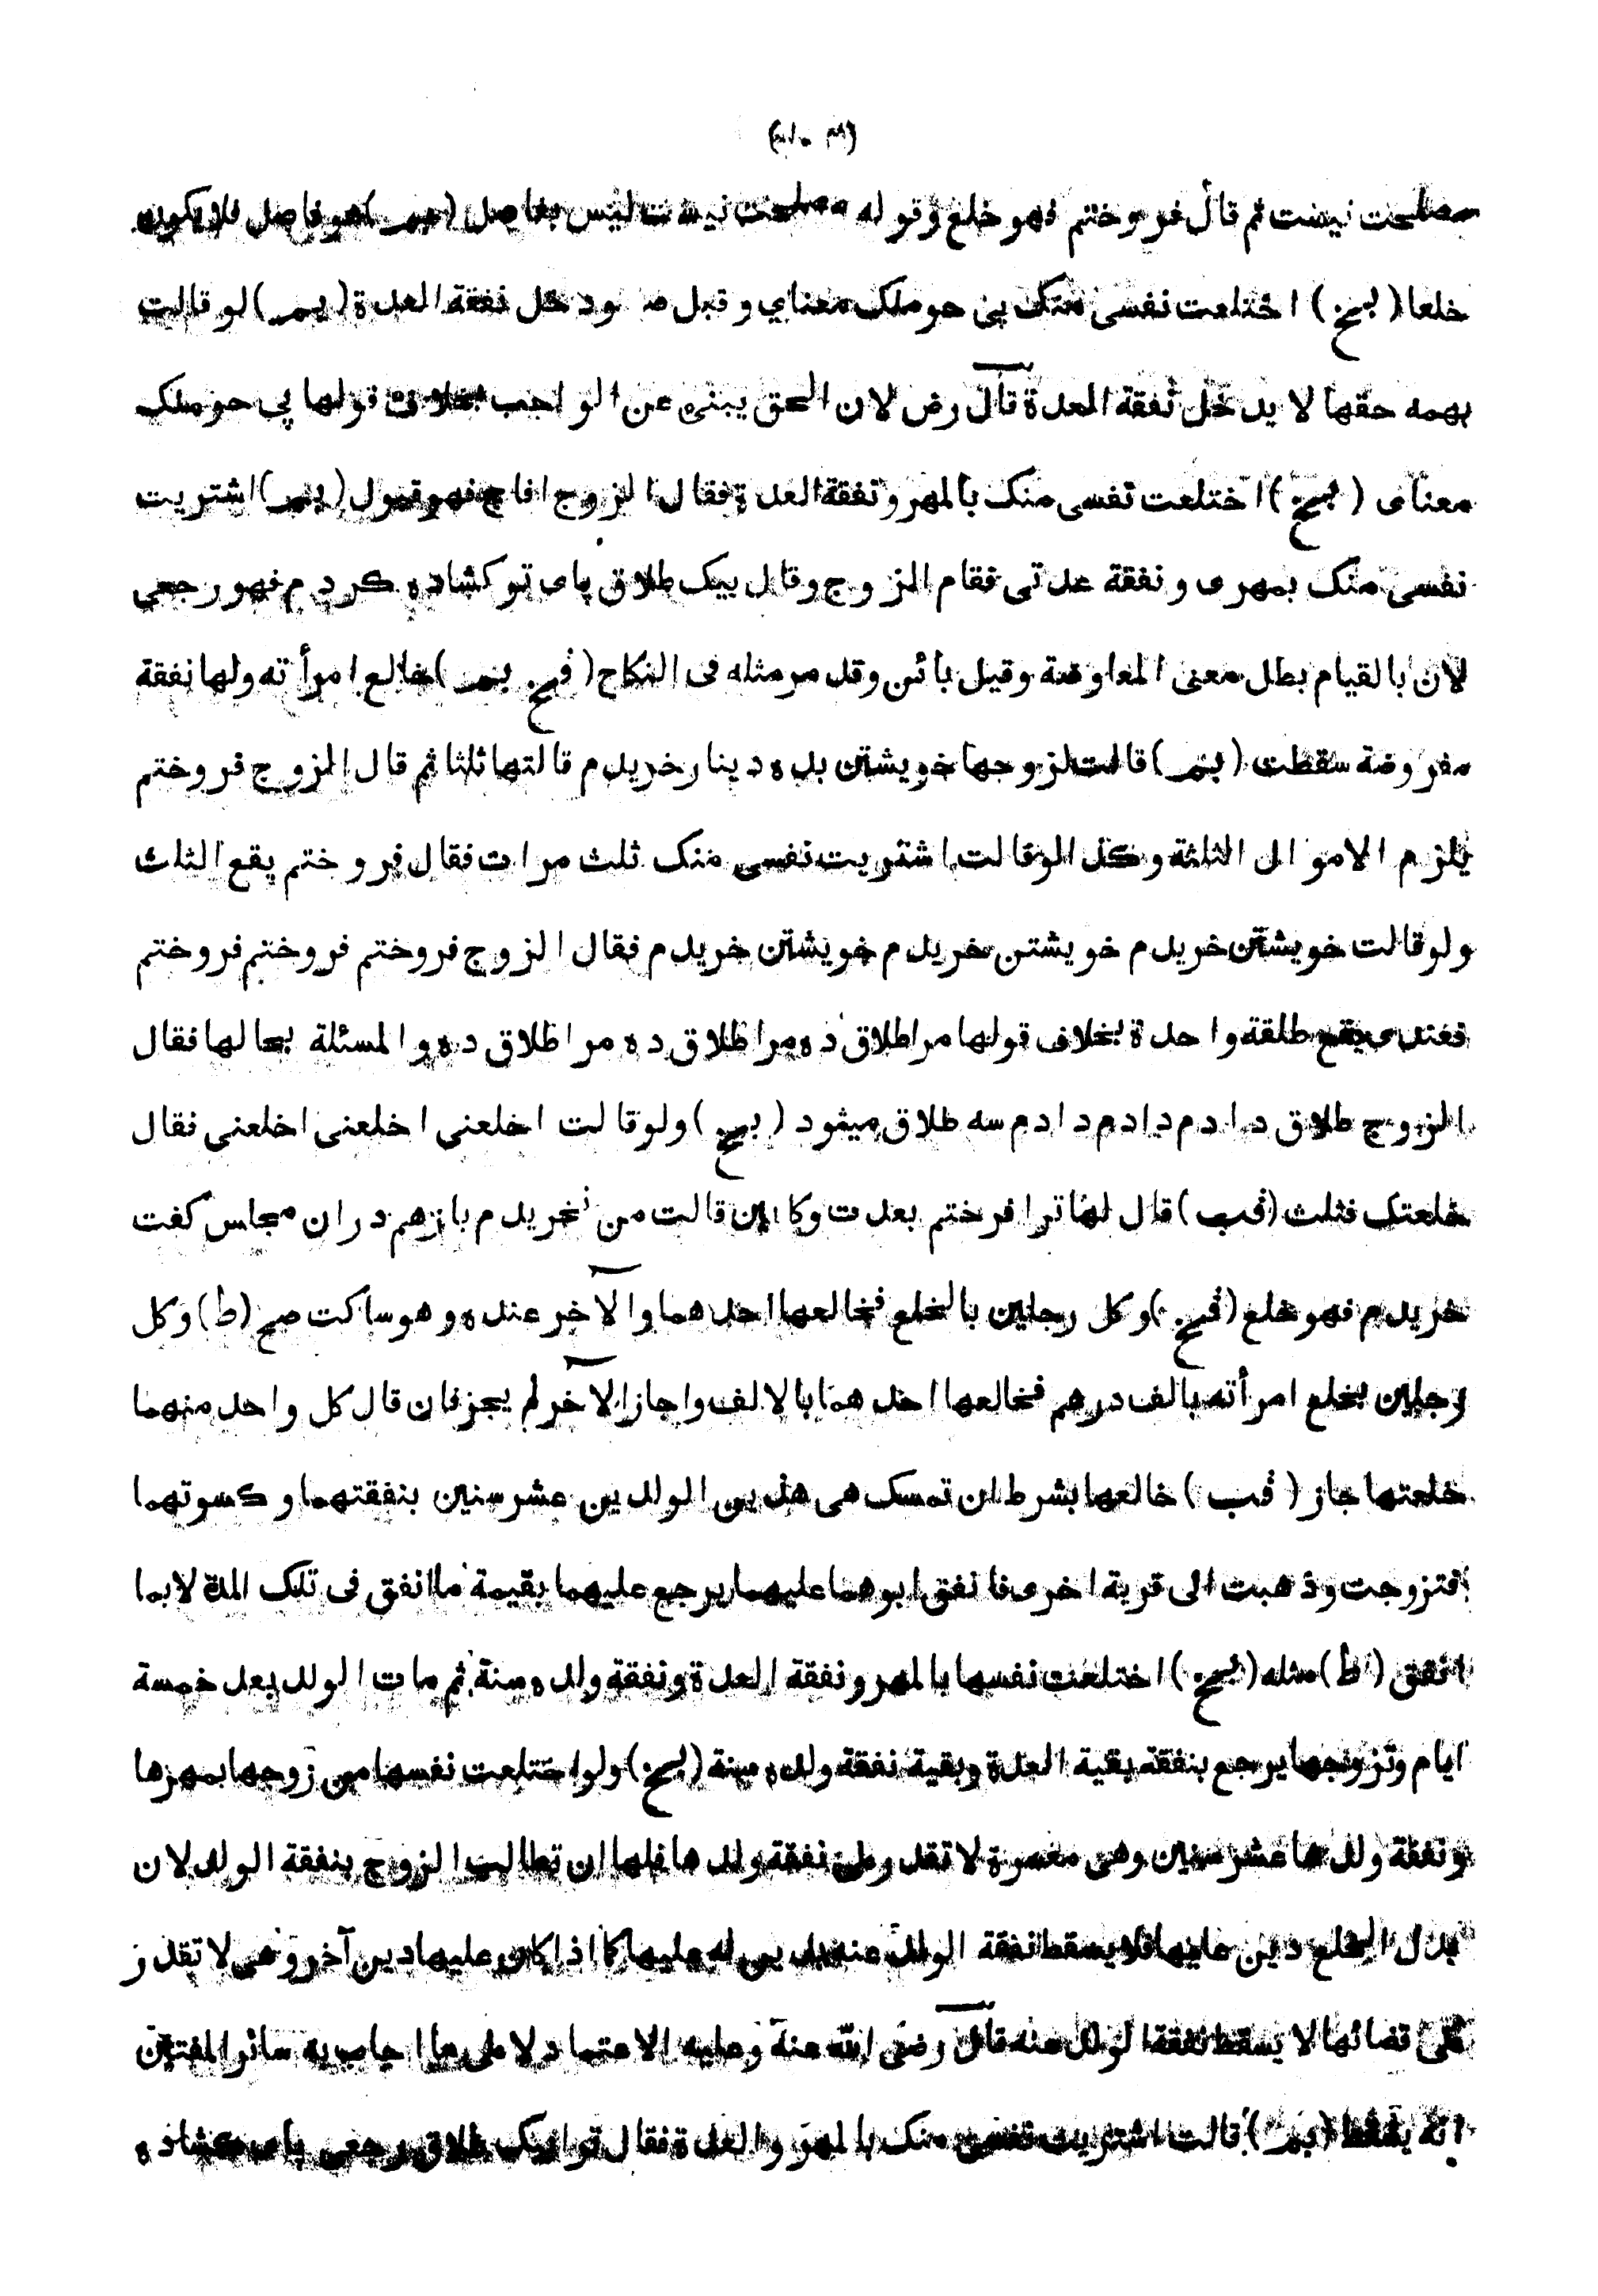 مصلحت نيست ثم قال فروختم فهو خلع وقوله مصلحت نيست ليس بفاصل (بمر) هو فاصل فلا يكون
خلعا (بمخ) اختلعت نفسى منك بى حو ملک معناي وقبل دخل نفقة العدة (بمر) لو قالت
بهمه حقها لا يدخل نفقة العدة قال رض لان الحق يبنى عن الواجب بخلاف قولها پي حو ملک
معناى (بمخ) اختلعت نفسى منك بالمهر ونفقة العدة فقال الزوج افاج فهو قبول (بمر) اشتريت
نفسى منك بمهرى ونفقة عدتى فقام الزوج وقال بيک طلاق پاى تو کشاده کردم فهو رجعي
لان بالقيام بطل معنى المعاوضة وقيل بائن وقد مر مثله فى النكاح (فخ بمر) خالع امرأته ولها نفقة
مفروضة سقطت (بمر) قالت لزوجها خويشتن بده دينار خريدم قالتها ثلثا ثم قال الزوج فروختم
يلزم الاموال الثلثة وكذا لو قالت اشتريت نفسى منك ثلث مرات فقال فروختم يقع الثلث
ولو قالت خويشتن خريدم خويشتن خريدم خويشتن خريدم فقال الزوج فروختم فروختم فروختم
فعندى يقع طلقة واحدة بخلاف قولها مرا طلاق ده مرا طلاق ده مرا طلاق ده والمسئلة بحالها فقال
الزوج طلاق دادم دادم دادم سه طلاق ميشود (بمخ) ولو قالت اخلعني اخلعنى اخلعنى فقال
خلعتك فثلث (قب) قال لها ترا فرختم بعدت وكابين قالت من نخريدم بازهم دران مجلس گفت
خريدم فهو خلع (فخ) وكل رجلين بالخلع فخالعها احدهما والآخر عنده وهو ساكت صح (ط) وكل
رجلين بخلع امرأته بالف درهم فخالعها احدهما بالالف واجاز الآخر لم يجز فان قال كل واحد منهما
خلعتها جاز (قب) خالعها بشرط ان تمسك هى هذين الولدين عشر سنين بنفقتهما وكسوتهما
فتزوجت وذهبت الى قرية اخرى فانفق ابوهما عليهما يرجع عليهما بقيمة ما انفق فى تلك المدة لا بما
انفق (ط) مثله (بمخ) اختلعت نفسها بالمهر ونفقة العدة ونفقة ولده سنة ثم مات الولد بعد خمسة
ايام وتزوجها يرجع بنفقة بقية العدة وبقية نفقة ولده سنة (بمخ) ولو اختلعت نفسها من زوجها بمهرها
ونفقة ولدها عشر سنين وهى معسرة لا تقدر على نفقة ولدها فلها ان تطالب الزوج بنفقة الولد لان
بدل الخلع دين عليها فلا يسقط نفقة الولد عنه بدين له عليها كما اذا كان عليها دين آخر وهى لا تقدر
على قضائها لا يسقط نفقة الولد عنه قال رضى الله عنه وعليه الاعتماد لا على ما اجاب به سائر المفتين
انه يسقط (بمر) قالت اشتريت نفسى منك بالمهر والعدة فقال تو بيک طلاق رجعي پاى کشاده